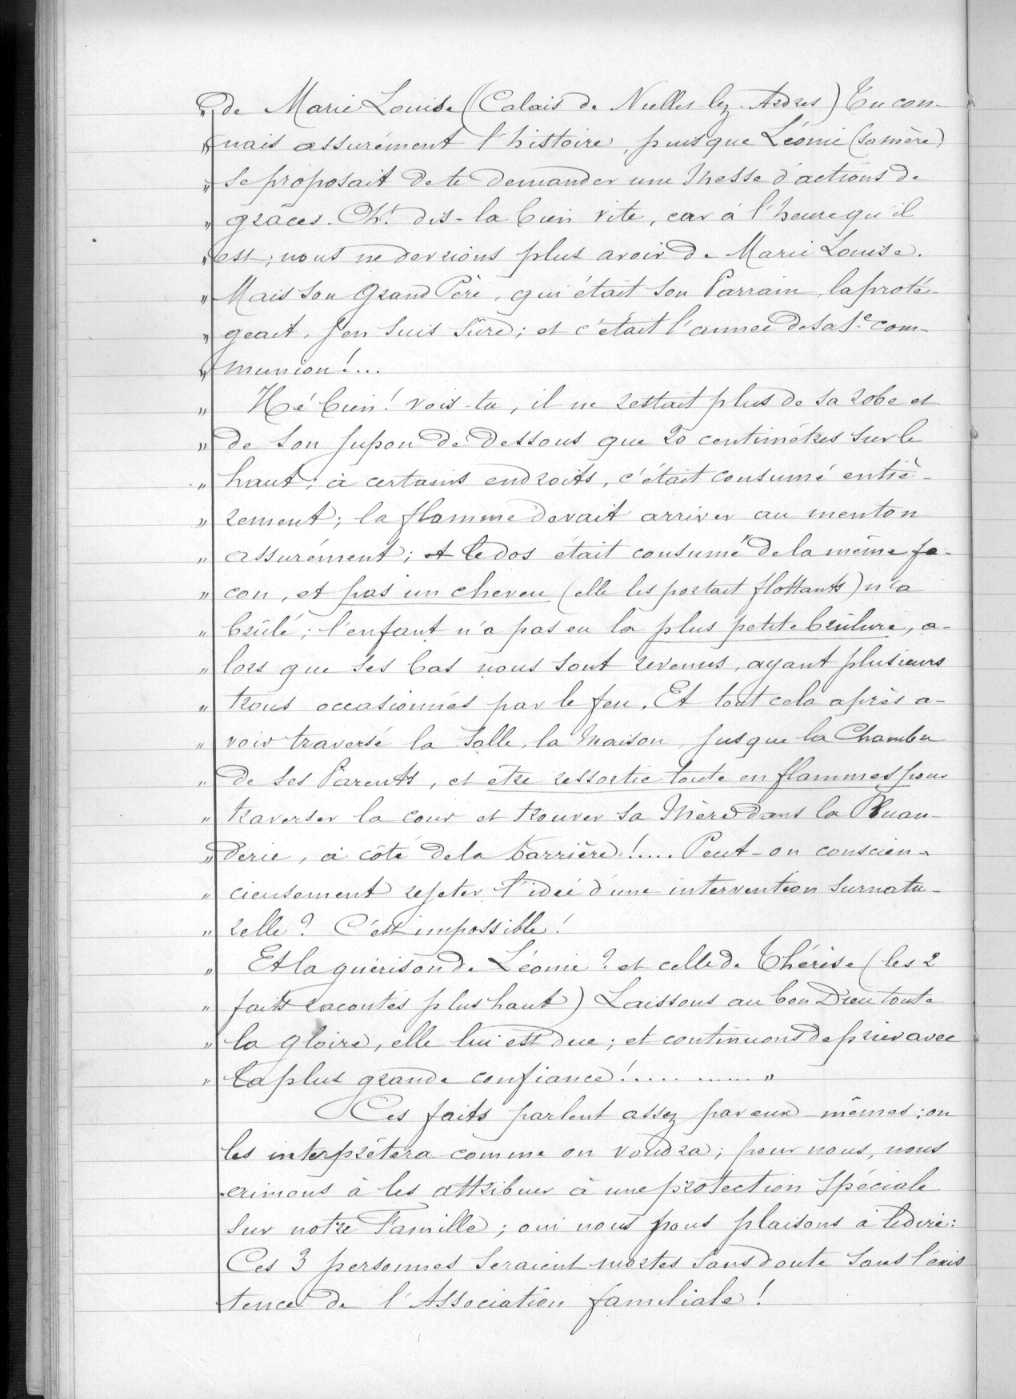 " de Marie Louise (Calais de Nielles lez-Ardres) Tu con-
" nais assurément l'histoire, puisque Léonie (sa mère)
" se proposait de te demander une Messe d'actions de
" grâces. dis-la bien vite, car à l'heure qu'il
" est, nous ne devrions plus avoir de Marie Louise.
" Mais son Grand Père, qui était son Parrain, la proté-
" geait, j'en suis sûre; et c'était l'année de sa 1e com-
" munion!...
" Hé bien! vois-tu, il ne restait plus de sa robe et
" de son jupon de dessous que 20 centimètres sur le
" haut; à certains endroits, c'était consumé entiè-
" rement; la flamme devait arriver au menton
" assurément; et le dos était consumé de la même fa-
" con, et pas un cheveu (elle les portait flottants) n'a
" brûlé; l'enfant n'a pas eu la plus petite brûlure, a-
" lors que ses bas nous sont revenus, ayant plusieurs
" trous occasionnés par le feu. Et tout cela après a-
" voir traversé la salle, la maison jusque la Chambre
" de ses Parents, et être ressortie toute en flammes pour
" traverser la cour et trouver sa Mère dans la Buan-
" derie, à côté de la barrière!.... Peut-on conscien-
" cieusement rejeter l'idée d'une intervention surnatu-
" relle? C'est impossible!
" Et la guérison de Léonie? et celle de Thérèse (les 2
" faits racontés plus haut) Laissons au bon Dieu toute
" la gloire, elle lui est due; et continuons de prier avec
" la plus grande confiance!............"
Ces faits parlent assez par eux mêmes; on
les interprétera comme on voudra; pour nous, nous
crimons à les attribuer à une protection spéciale
sur notre Famille; oui nous nous plaisons à le dire:
Ces 3 personnes seraient mortes sans doute sans l'exis
tence de l'Association familiale!